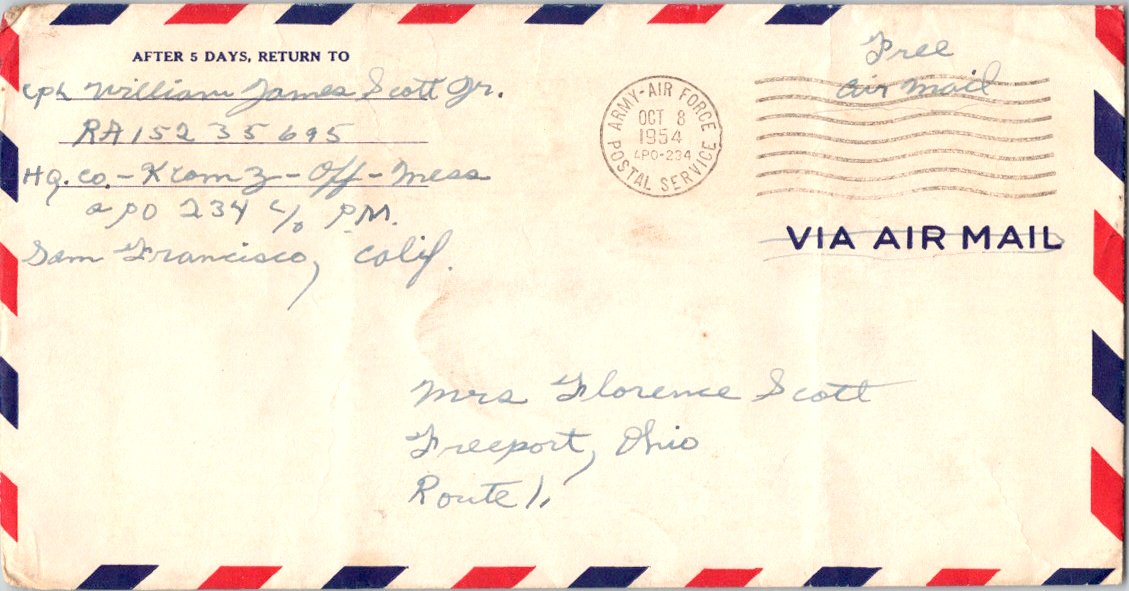 AFTER 5 DAYS, RETURN TO
Cpl William James Scott Jr.
RA 152 35 695
Hq. Co. - Kcomz - Off - Mess
APO 234 c/o P.M.
San Francisco, Calif.
ARMY-AIR FORCE
OCT 8
1954
APO-234
POSTAL SERVICE
Free
air mail
VIA AIR MAIL
Mrs Florence Scott
Freeport, Ohio
Route 1.